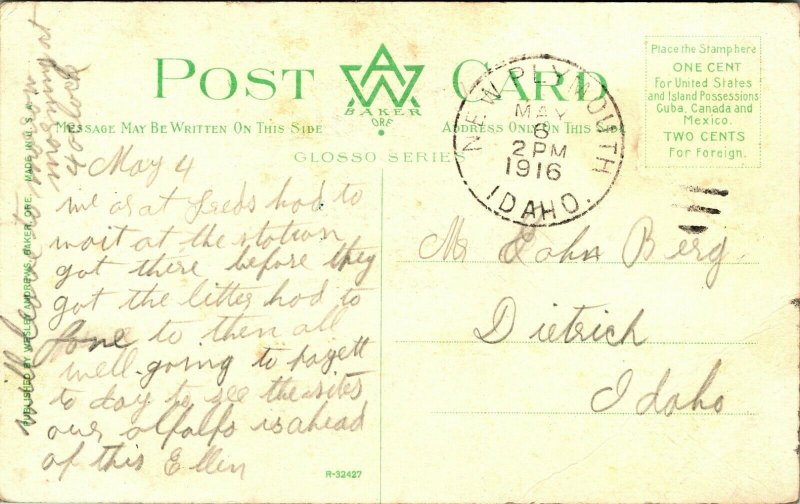 POST CARD
BAKER
ORE.
MESSAGE MAY BE WRITTEN ON THIS SIDE
ADDRESS ONLY ON THIS SIDE
GLOSSO SERIES
Place the Stamp here
ONE CENT
For United States
and Island Possessions
Cuba, Canada and
Mexico.
TWO CENTS
For Foreign.
NEW PLYMOUTH
MAY
6
2 PM
1916
IDAHO.
May 4
we ar at Leeds had to
wait at the station
got there before they
got the litter had to
fone to then all
well going to payett
to day to see the sites
our alfalfa is ahead
of this Ellen
will leave to morow
morning at
4 oclock
Mr John Berg
Dietrich
Idaho
PUBLISHED BY WESLEY ANDREWS, BAKER, ORE. MADE IN U.S.A.
R-32427